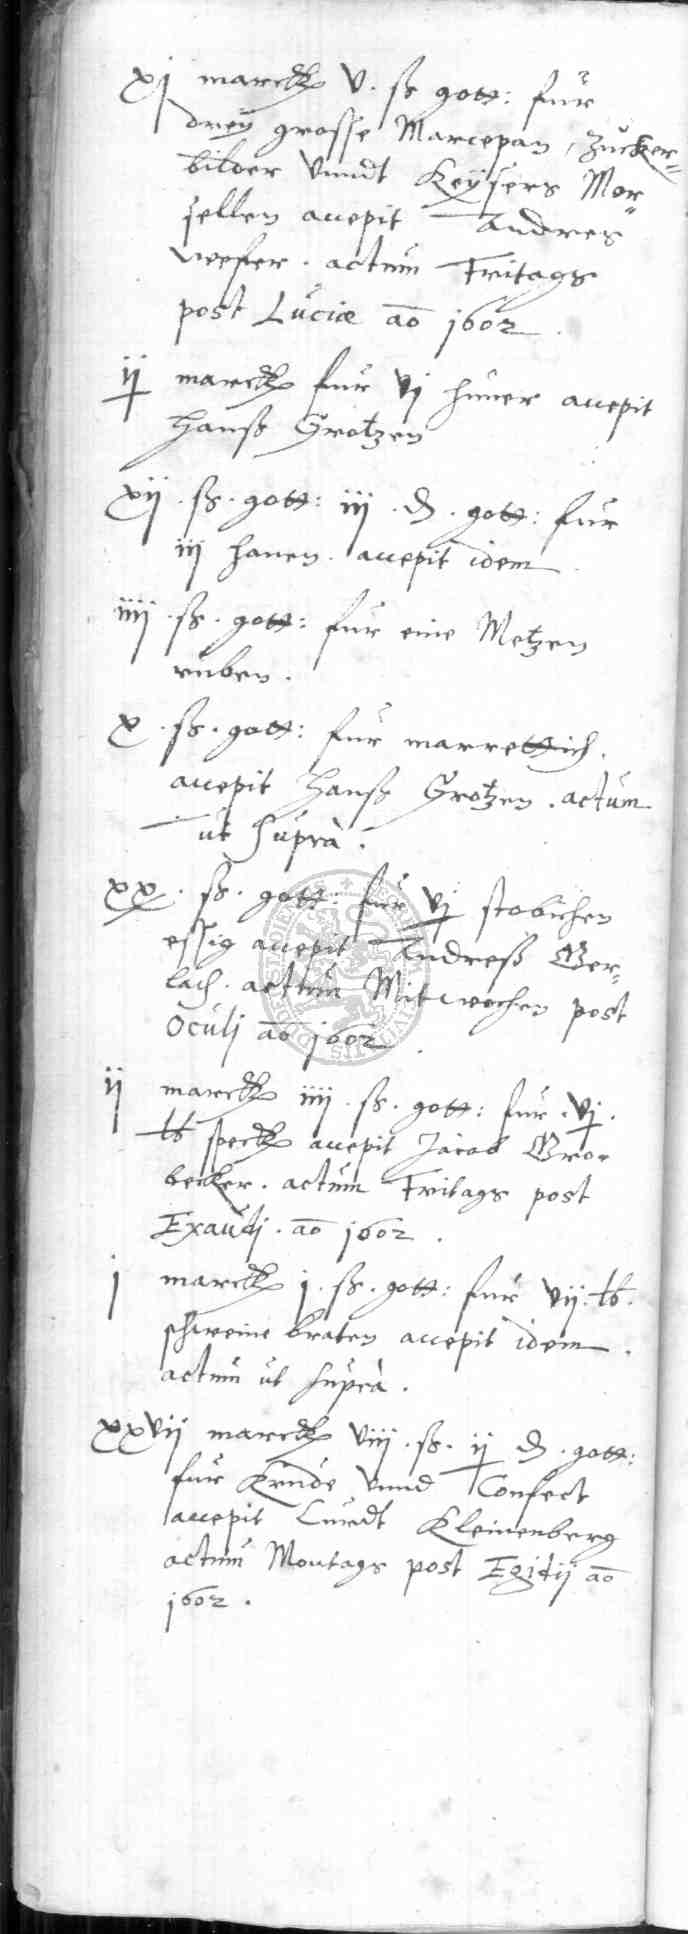 xj marck v. ß gott: fur
drey grosse Marcepan, Zucker=
bilder vnndt Keysers Mor=
sellen accepit Andres
actum Fritags
post Luciæ ao 1602.
ij marck fur vj huner accepit
Hanß Grotzen
xvij. ß. gott: iij. d. gott: fur
iij hanen. accepit idem
iiij. ß. gott: fur eine Metzen
ruben.
x. ß. gott: fur marrettich.
accepit Hanß Grotzen. actum
ut supra.
xx. ß. gott: fur vj stobichen
essig accepit Andreß Ger=
lach. actum Mitwochen post
Oculj ao 1602.
ij marck iiij. ß. gott: fur. vj.
lb speck accepit Jacob Gro=
becker. actum Fritags post
Exaudj. ao 1602.
j marck j. ß. gott: fur vij. lb.
schweine braten accepit idem.
actum ut supra.
xxvij marck viij. ß. ij d. gott:
fur Krude vnnd Confect
accepit Curdt Kleinenberg
actum Montags post Egidij ao
1602.